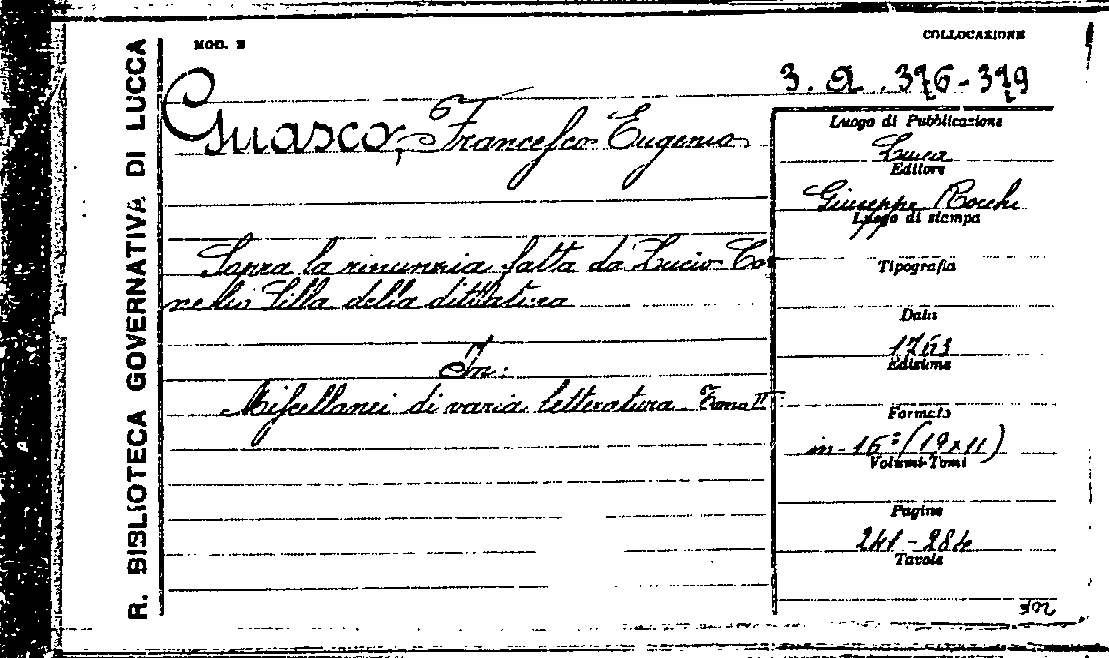 R. BIBLIOTECA GOVERNATIVA DI LUCCA
MOD. B
COLLOCAZIONE
3. a. 376-379
Guasco, Francesco Eugenio
Sopra la rinunzia fatta da Lucio Cor
nelio Silla della dittatura
In:
Miscellanei di varia letteratura. Tomo II
Luogo di Pubblicazione
Lucca
Editore
Giuseppe Rocchi
Luogo di stampa
Tipografia
Data
1763
Edizione
Formato
in-16º (19x11)
Volumi-Tomi
Pagine
241-284
Tavole